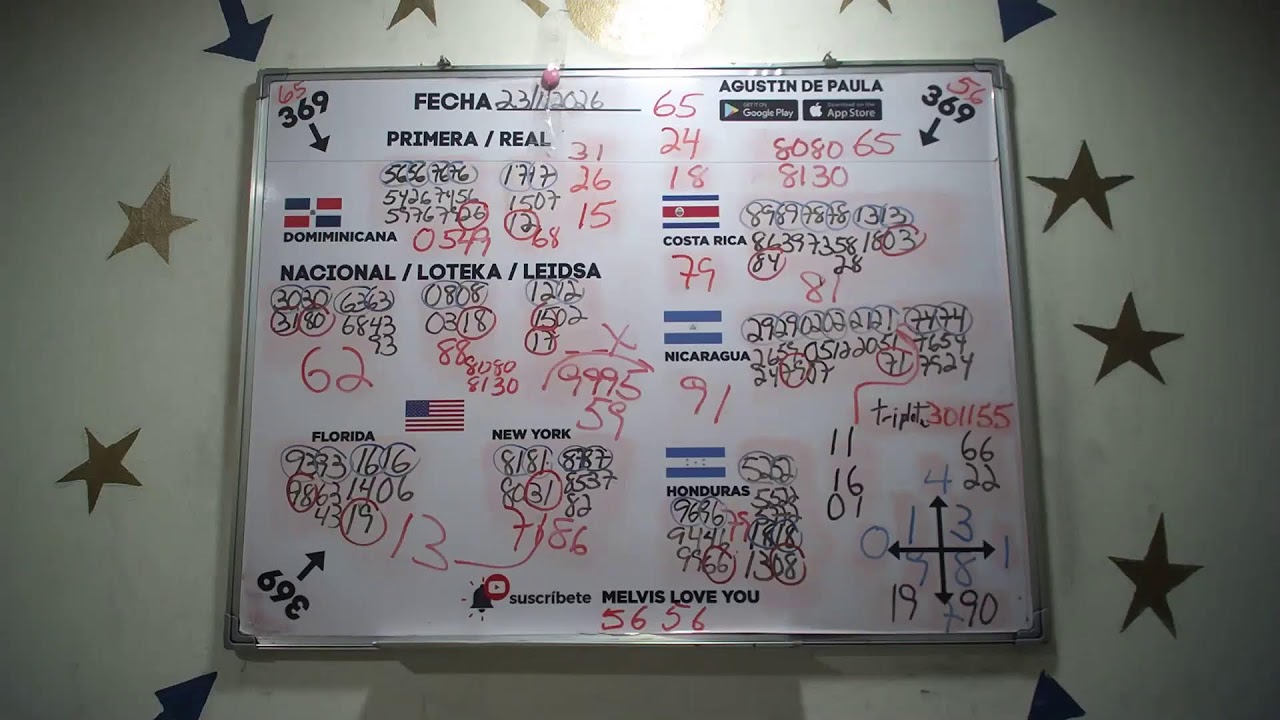 65
369
FECHA 23/1/2026
65
AGUSTIN DE PAULA
GET IT ON
Google Play
Download on the
App Store
56
369
PRIMERA / REAL
31
24
8080 65
5656 7676
1717
26
18
8130
5426 7456
1507
5976 7426
12
15
DOMIMINICANA
0549
68
COSTA RICA
8989 7878 1313
8639 7358 1803
84
28
79
81
NACIONAL / LOTEKA / LEIDSA
3030 6363
0808
1212
3180 6843
0318
1502
93
17
62
88
8080
8130
X
19995
59
NICARAGUA
2929 0202 2121 7474
0512 2051 7654
71
7524
91
triplet 301155
FLORIDA
9393 1616
7863 1406
43
19
13
NEW YORK
8181 8787
8031 8537
82
7186
HONDURAS
5252
5522
9696
75
9441
1818
9966
1308
11
16
01
66
22
4
1 3
0 1
9 8
19
7
90
369
suscríbete
MELVIS LOVE YOU
56 56